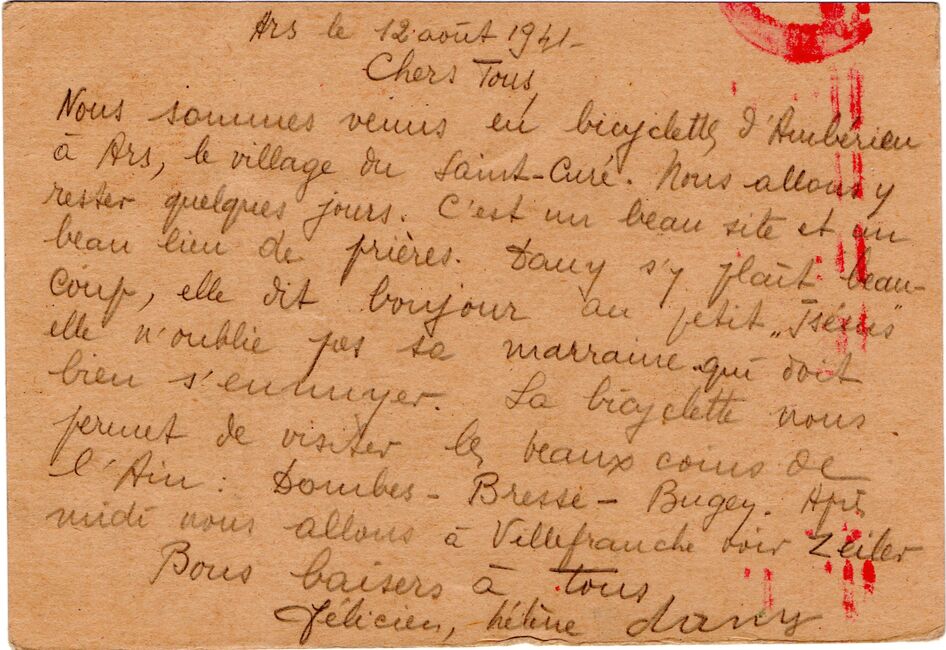 Ars le 12 août 1941-
Chers Tous,
Nous sommes venus en bicyclette, d'Ambérieu
à Ars, le village du Saint-Curé. Nous allons y
rester quelques jours. C'est un beau site et un
beau lieu de prières. Dany s'y plaît beau-
coup, elle dit bonjour au petit „Iséus"
elle n'oublie pas sa marraine qui doit
bien s'ennuyer. La bicyclette nous
permet de visiter les beaux coins de
l'Ain : Dombes - Bresse - Bugey. Après
midi nous allons à Villefranche voir Zeiler
Bons baisers à tous
Félicien, hélène dany